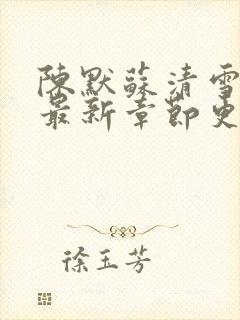 陳默蘇清雪
最新章節更
徐玉芳